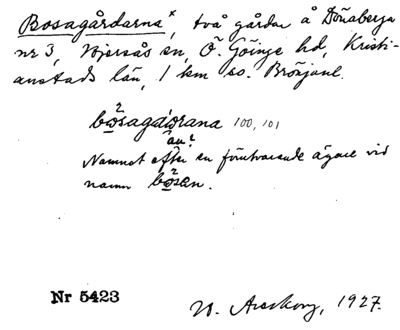 Bosagårdarna*, två gårdar å Dönaberga
nr 3, Hjersås sn, Ö. Göinge hd, Kristi-
anstads län, 1 km so. Brönjarl.
bosagårana 100, 101
åu?
Namnet efter en förutvarande ägare vid
namn bosan.
Nr 5423
W. Areskog, 1927.